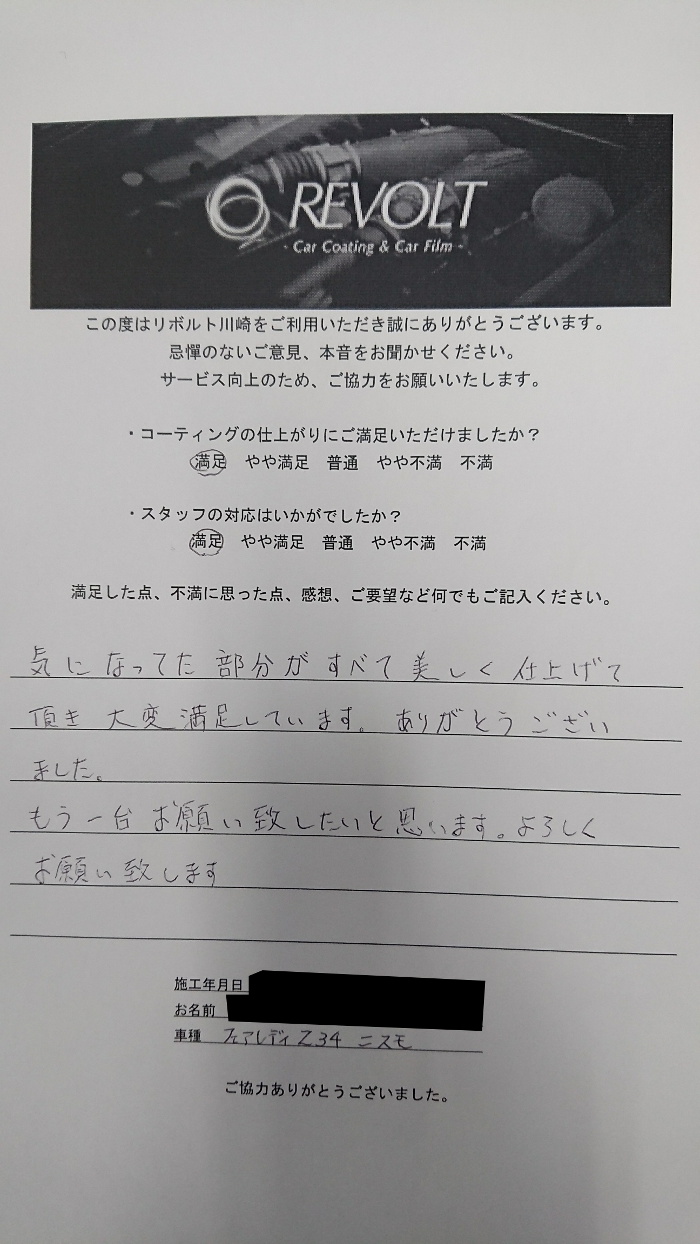 REVOLT
- Car Coating & Car Film -
この度はリボルト川崎をご利用いただき誠にありがとうございます。
忌憚のないご意見、本音をお聞かせください。
サービス向上のため、ご協力をお願いいたします。
・コーティングの仕上がりにご満足いただけましたか？
満足 やや満足 普通 やや不満 不満
・スタッフの対応はいかがでしたか？
満足 やや満足 普通 やや不満 不満
満足した点、不満に思った点、感想、ご要望など何でもご記入ください。
気になってた部分がすべて美しく仕上げて
頂き大変満足しています。ありがとうござい
ました。
もう一台お願い致したいと思います。よろしく
お願い致します
施工年月日
お名前
車種 フェアレディZ34 ニスモ
ご協力ありがとうございました。